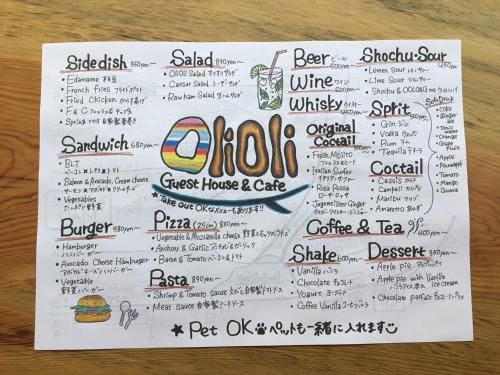 Side dish 350yen~
• Edamame 枝豆
• French fries フライドポテト
• Fried Chicken からあげ
• Spring roll 自家製春巻き
Salad 890yen~
• OliOli Salad オリオリサラダ
• Caesar Salad シーザーサラダ
• Rawham Salad 生ハムサラダ
Sandwich 680yen~
• BLT
ベーコン×レタス×トマト
• Salmon & Avocado, Cream cheese
• Vegetables
たっぷり野菜
Burger 680yen~
• Hamburger
ハンバーガー
• Avocado Cheese Hamburger
アボカドチーズハンバーガー
• Vegetable
野菜バーガー
OliOli
Guest House & Cafe
★ Take out OKなメニューもあります!!
Pizza (25cm) 890yen~
• Vegetable & Mozzarella cheese
• Anchovy & Garlic アンチョビ&ガーリック
• Bacon & Tomato ベーコン&トマト
Pasta 890yen~
• Shrimp & Tomato sauce
• Meat sauce 自家製ミートソース
Beer ビール 500yen~
Wine ワイン 500yen~
Whisky ウイスキー 450yen~
Original Coctail
• Fresh Mojito
フレッシュモヒート
• Italian Surfer
イタリアンサーファー
• Rosa Rossa
ローザロッサ
• Jagermeister Ginger
Shochu・Sour 450yen
• Lemon Sour レモンサワー
• Lime Sour ライムサワー
• Shochu & OOLONG tea
Sprit 500yen~
• Gin ジン
• Vodka ウォッカ
• Rum ラム
• Tequila テキーラ
Soft Drink
• Coke
• Ginger ale
• Tonic water
• Orange
• Grape Fruits
• Apple
• Pineapple
• Tomato
• Mango
• Guava
Coctail 500yen~
• Cassis カシス
• Campari カンパリ
• Malibu マリブ
• Amaretto
Coffee & Tea 400yen~
Shake 600yen~
• Vanilla バニラ
• Chocolate チョコレート
• Yogurt ヨーグルト
• Coffee Vanilla コーヒーバニラ
Dessert 350yen~
• Apple pie アップルパイ
• Apple pie with Vanilla ice cream
• Chocolate parfait チョコレートパフェ
★ Pet OK ペットも一緒に入れます